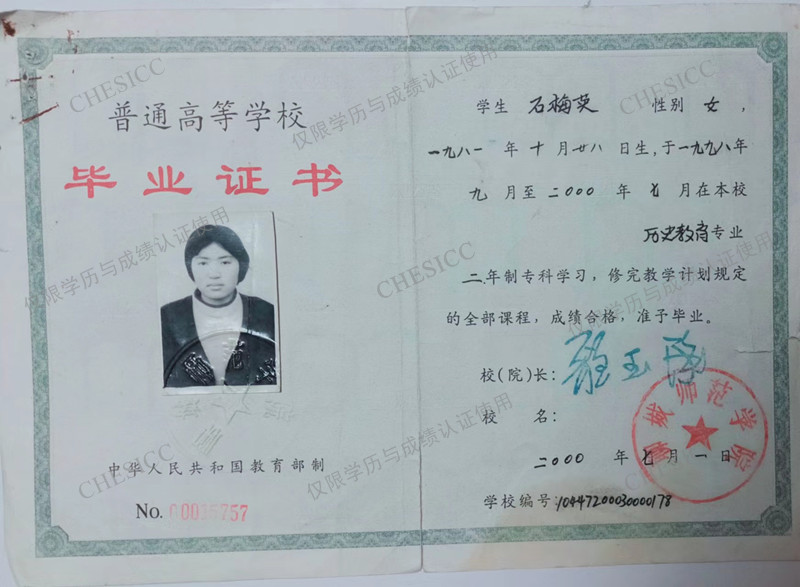 普通高等学校
毕业证书
中华人民共和国教育部制
No. 00015757
学生 石梅英 性别 女，
一九八一 年 十 月 廿八 日生，于一九九八年
九 月至 二000 年 七 月在本校
历史教育专业
二年制专科学习，修完教学计划规定
的全部课程，成绩合格，准予毕业。
校(院)长：
校 名：
二000 年 七 月 一 日
学校编号：1044720003000178
聊城师范学院
CHESICC
仅限学历与成绩认证使用
CHESICC
仅限学历与成绩认证使用
CHESICC
仅限学历与成绩认证使用
CHESICC
仅限学历与成绩认证使用
CHESICC